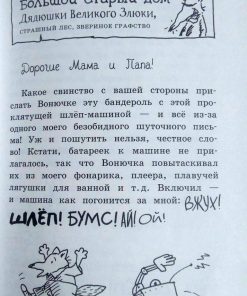 Большой Старый Дом
Дядюшки Великого Злюки,
СТРАШНЫЙ ЛЕС, ЗВЕРИНОЕ ГРАФСТВО
Дорогие Мама и Папа!
Какое свинство с вашей стороны при-
слать Вонючке эту бандероль с этой про-
клятущей шлёп-машиной — и всё из-за
одного моего безобидного шуточного пись-
ма! Уж и пошутить нельзя, честное сло-
во! Кстати, батареек к машине не при-
лагалось, так что Вонючка повытаскивал
их из моего фонарика, плеера, плавучей
лягушки для ванной и т. д. Включил —
и машина как погонится за мной: ВЖУХ!
ШЛЁП! БУМС! АЙ! Ой!